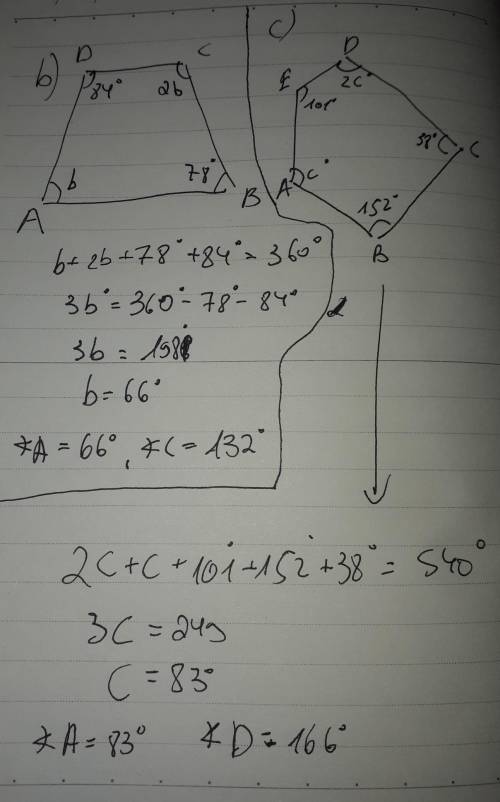 b)
D C
84° 2b
b 78°
A B
b+2b+78°+84°=360°
3b°=360°-78°-84°
3b = 198°
b=66°
*A=66°, *C=132°
c)
D
E 2c°
101°
38° C
A c°
152°
B
2C+C+101°+152°+38°=540°
3C=249
C=83°
*A=83° *D=166°